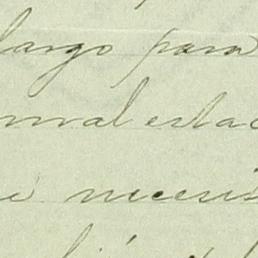 largo para
rmal estac
e necesi